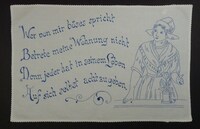 Wer von mir böses spricht
Betrete meine Wohnung nicht
Denn jeder hat in seinem Leben
Auf sich selbst acht zu geben